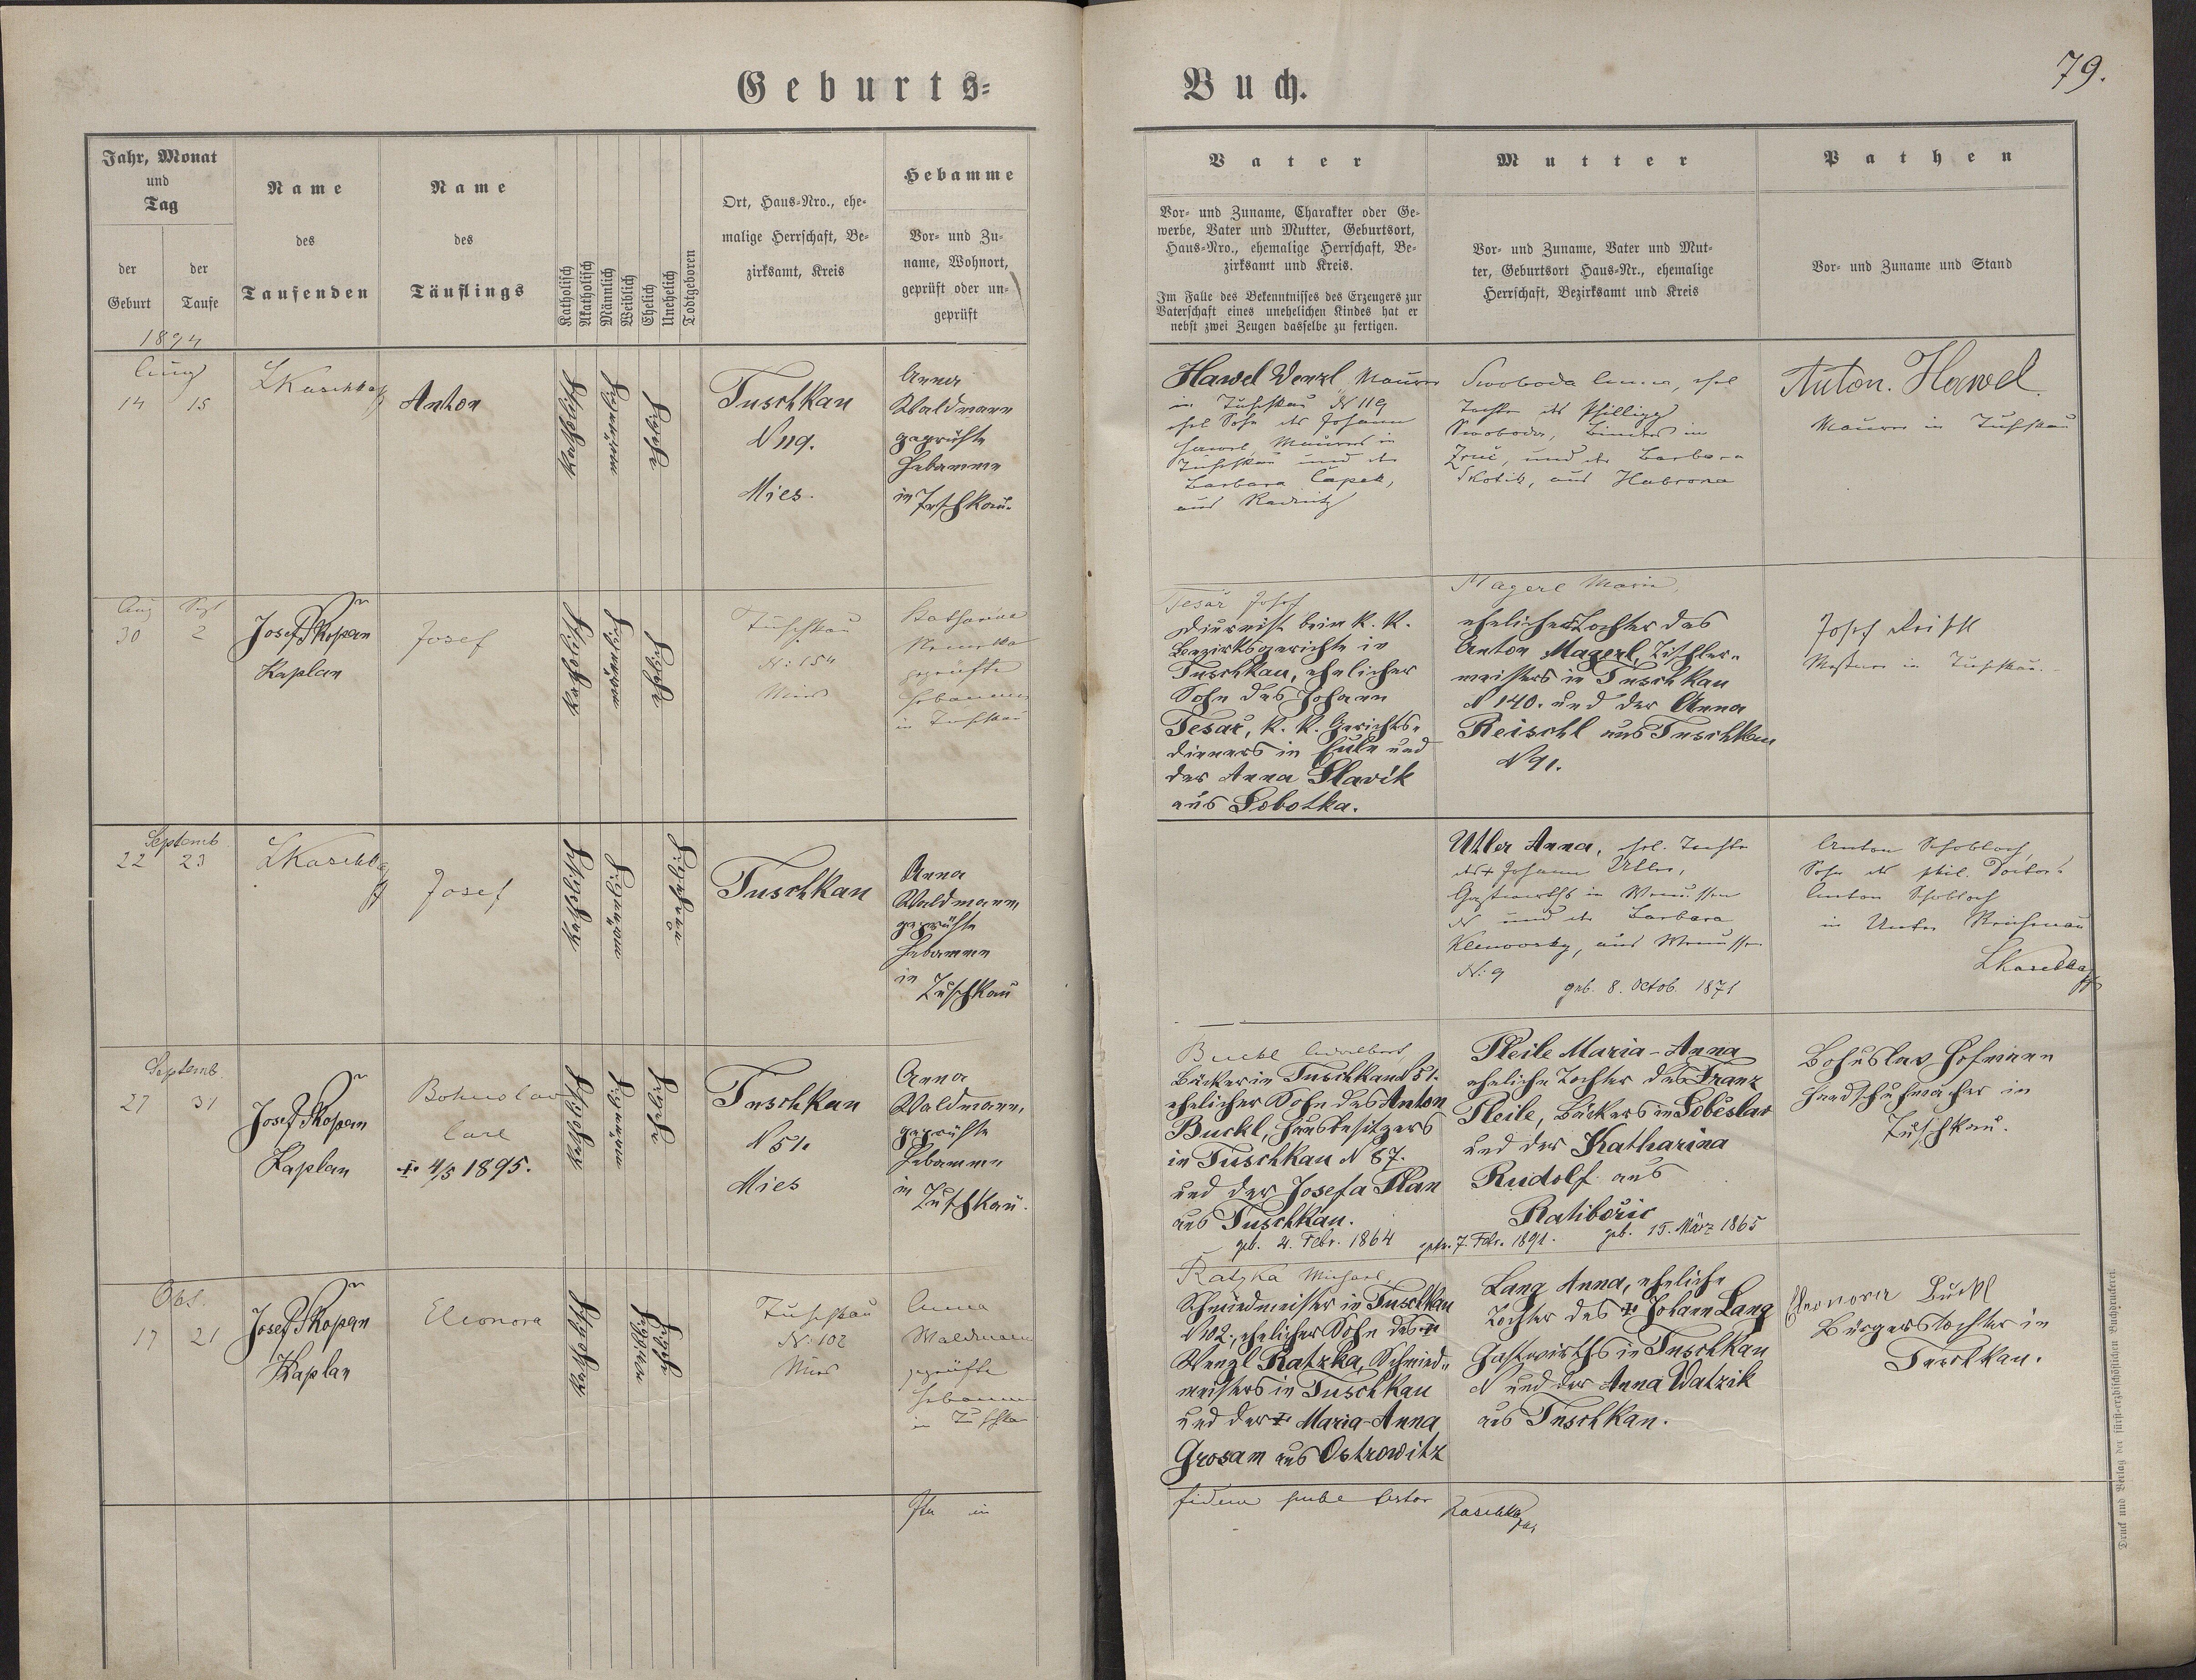 Geburts-Buch.
79.
Jahr, Monat
und
Tag
der
Geburt
der
Taufe
Name
des
Taufenden
Name
des
Täuflings
Katholisch
Akatholisch
Männlich
Weiblich
Ehelich
Unehelich
Todtgeboren
Ort, Haus-Nro., ehe-
malige Herrschaft, Be-
zirksamt, Kreis
Hebamme
Vor- und Zu-
name, Wohnort,
geprüft oder un-
geprüft
Vater
Vor- und Zuname, Charakter oder Ge-
werbe, Vater und Mutter, Geburtsort,
Haus-Nro., ehemalige Herrschaft, Be-
zirksamt und Kreis.
Im Falle des Bekenntnisses des Erzeugers zur
Vaterschaft eines unehelichen Kindes hat er
nebst zwei Zeugen dasselbe zu fertigen.
Mutter
Vor- und Zuname, Vater und Mut-
ter, Geburtsort Haus-Nr., ehemalige
Herrschaft, Bezirksamt und Kreis
Pathen
Vor- und Zuname und Stand
1894
Aug
14 15
Anton
katholisch
männlich
ehelich
Tuschkau
N 119.
Mies.
Anna
Waldmann
geprüfte
Hebamme
in Tuschkau.
Hawel Wenzl, Maurer
in Tuschkau N 119
ehel Sohn des Johann
Hawel, Maurers in
Tuschkau und der
Barbara Čapek,
aus Radnitz
Swoboda Anna, ehel
Tochter des Philipp
Swoboda, Binders in
Zruč, und der Barbara
aus
Anton Hawel
Maurer in Tuschkau
Aug Sept
30 2
Josef Škopán
Kaplan
Josef
katholisch
männlich
ehelich
Tuschkau
N: 154
Mies
Katharina
geprüfte
Hebamme
in Tuschkau
Tesař Josef
Diurnist beim k. k.
Bezirksgerichte in
Tuschkau, ehelicher
Sohn des Johann
Tesař, k. k. Gerichts-
dieners in Eule und
der Anna Slavik
aus Sobotka.
Magerl Maria,
eheliche Tochter des
Anton Magerl, Tischler-
meisters in Tuschkau
N 140. und der Anna
Reischl aus Tuschkau
N 91.
Josef
in Tuschkau.
Septemb.
22 23
Josef
katholisch
männlich
unehelich
Tuschkau
Anna
Waldmann
geprüfte
Hebamme
in
Tuschkau
Utler Anna, ehel. Tochter
des + Johann Utler,
Gastwirths in Wenussen
N und der Barbara
aus Wenussen
N: 9
geb. 8. Octob. 1871
Anton Schobloch,
Sohn des phil. Doctors
Anton Schobloch
in Unter Reichenau
Septemb.
27 31
Josef Škopán
Kaplan
Bohuslav
Carl
† 4/5 1895.
katholisch
männlich
ehelich
Tuschkau
N 51.
Mies
Anna
Waldmann,
geprüfte
Hebamme
in
Tuschkau.
Buckl Adalbert,
Bäcker in Tuschkau N 51.
ehelicher Sohn des Anton
Buckl, Hausbesitzers
in Tuschkau N 87.
und der Josefa Plan
aus Tuschkau.
geb. 4. Febr. 1864
getr. 7. Febr. 1891.
Pleile Maria-Anna
eheliche Tochter des Franz
Pleile, Bäckers in Soběslav
und der Katharina
Rudolf aus
Ratibořic
geb. 15. März 1865
Bohuslav Hofmann
Handschuhmacher in
Tuschkau.
Okt.
17 21
Josef Škopán
Kaplan
Eleonora
katholisch
weiblich
ehelich
Tuschkau
N: 102
Mies
Anna
Waldmann
geprüfte
Hebamme
in Tuschkau
Ratzka Michael,
Schmiedmeister in Tuschkau
N 102., ehelicher Sohn des †
Wenzl Ratzka, Schmied-
meisters in Tuschkau
und der † Maria-Anna
Grosam aus Ostrowitz
Lang Anna, eheliche
Tochter des † Johann Lang
Gastwirths in Tuschkau
N und der Anna Watzik
aus Tuschkau.
Eleonora Buckl
Bürgerstochter in
Tuschkau.
Druck und Verlag der fürst-erzbischöflichen Buchdruckerei.